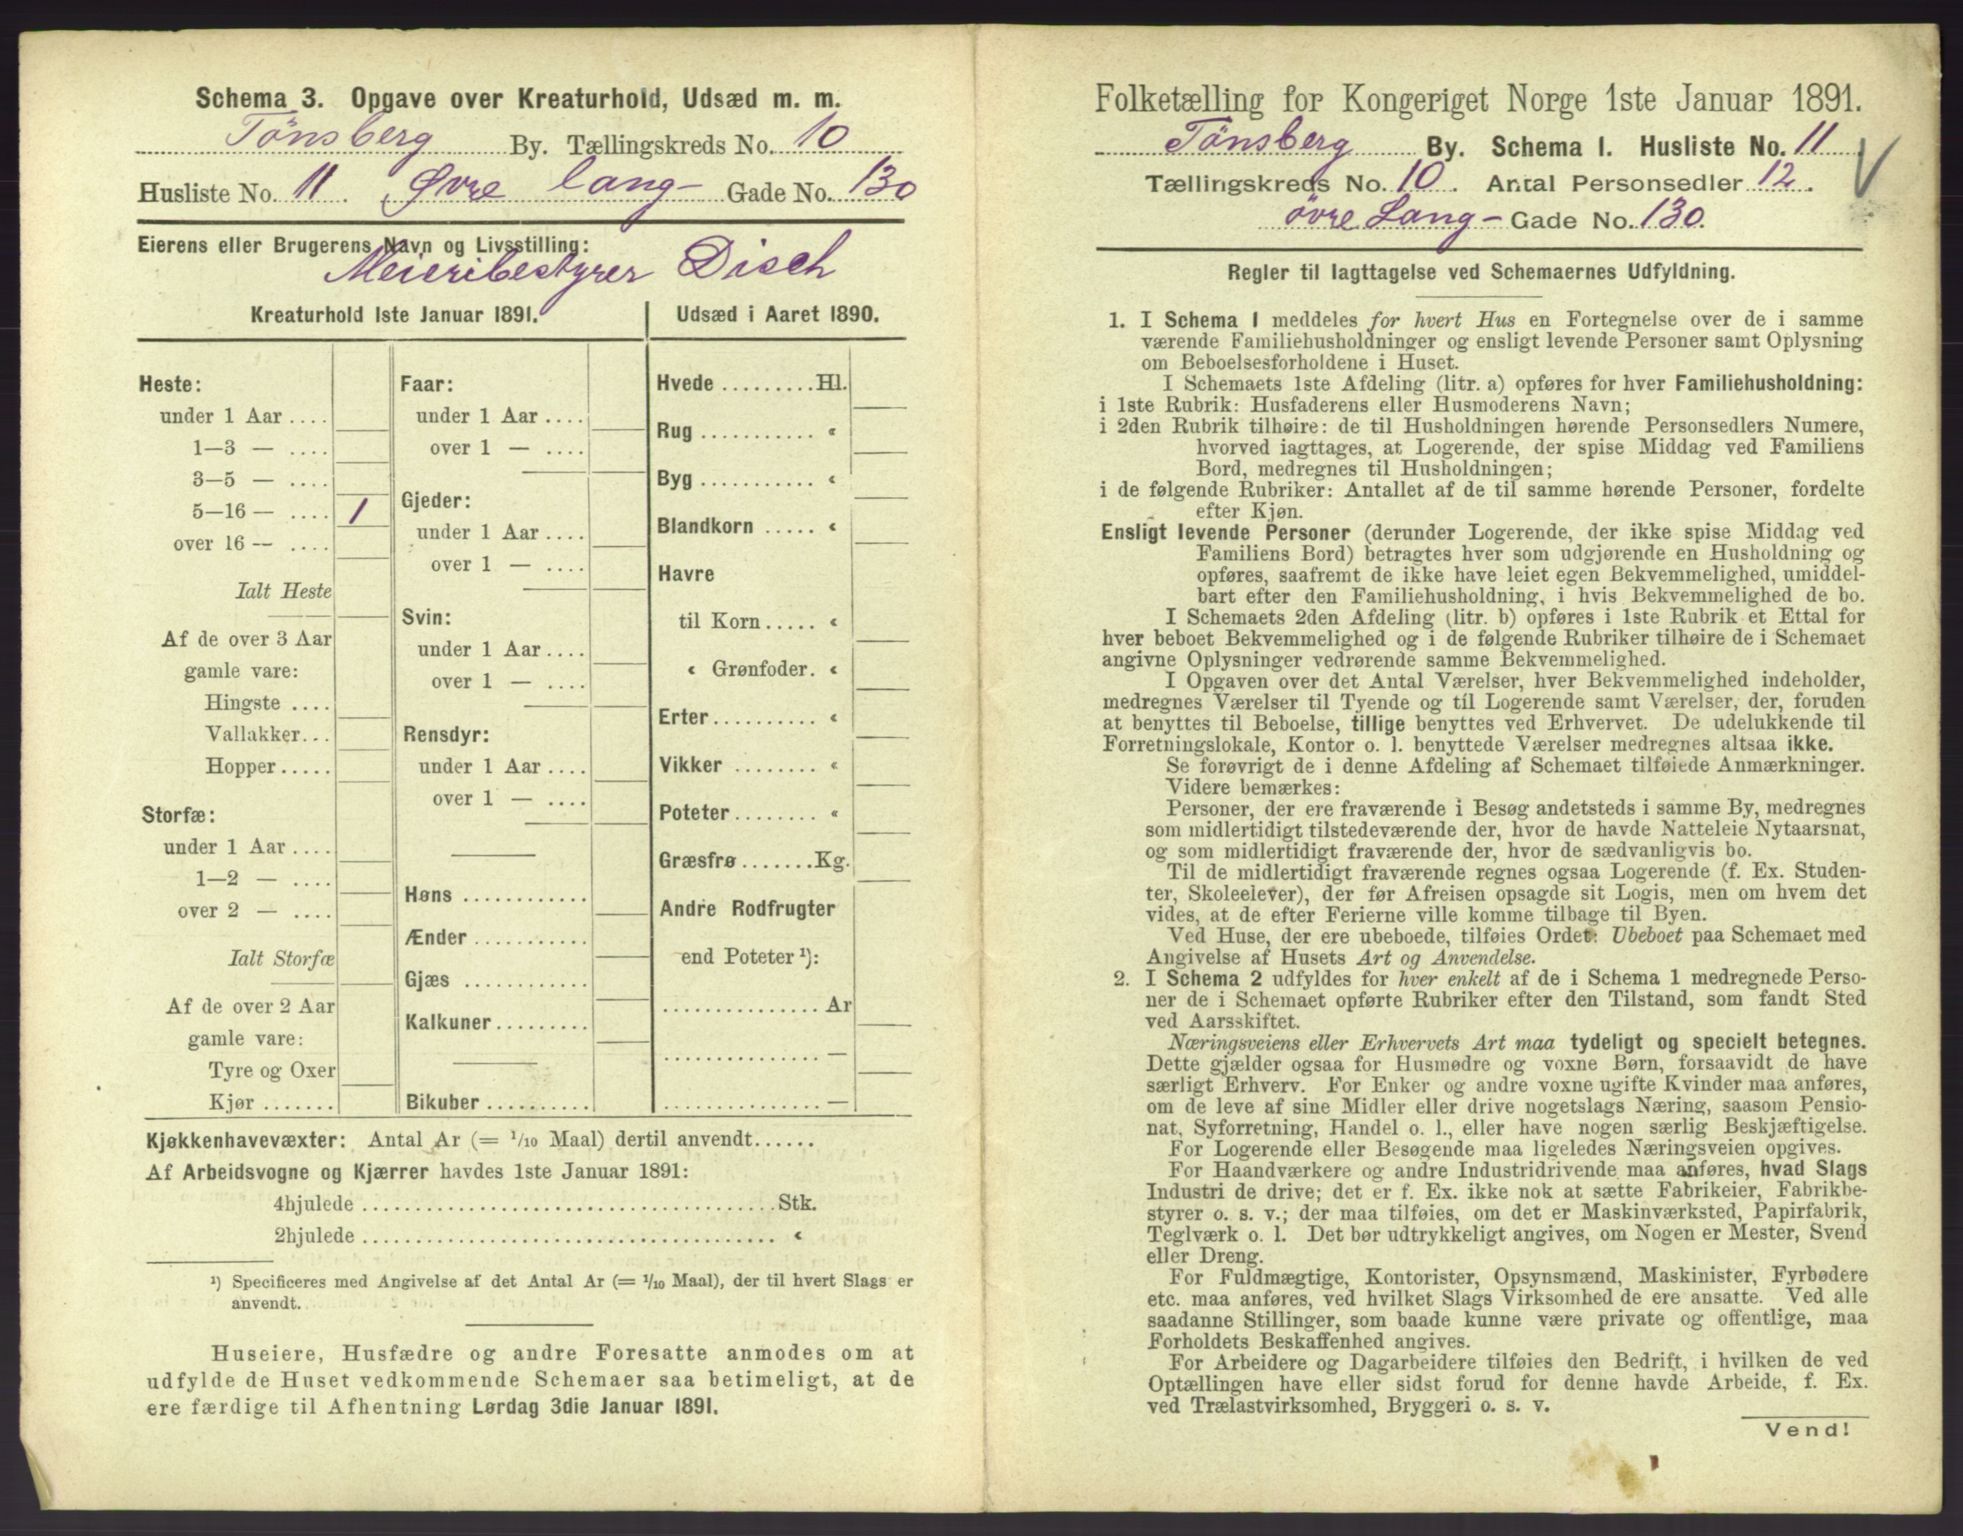 Schema 3. Opgave over Kreaturhold, Udsæd m. m.
Tönsberg By. Tællingskreds No. 10
Husliste No. 11. Øvre Lang- Gade No. 130
Eierens eller Brugerens Navn og Livsstilling:
Meieribestyrer Disch
Kreaturhold 1ste Januar 1891.
Heste:
under 1 Aar ....
1—3 — ....
3—5 — ....
5—16 — .... 1
over 16 — ....
Ialt Heste
Af de over 3 Aar
gamle vare:
Hingste ....
Vallakker...
Hopper.....
Storfæ:
under 1 Aar ....
1—2 — ....
over 2 — ....
Ialt Storfæ
Af de over 2 Aar
gamle vare:
Tyre og Oxer
Kjør .......
Faar:
under 1 Aar ....
over 1 — ....
Gjeder:
under 1 Aar ....
over 1 — ....
Svin:
under 1 Aar....
over 1 — ....
Rensdyr:
under 1 Aar....
over 1 — ....
Høns ............
Ænder ...........
Gjæs ............
Kalkuner.........
Bikuber ..........
Udsæd i Aaret 1890.
Hvede .........Hl.
Rug ........... «
Byg ........... «
Blandkorn ..... «
Havre
til Korn..... «
« Grønfoder. «
Erter.......... «
Vikker ........ «
Poteter........ «
Græsfrø.......Kg.
Andre Rodfrugter
end Poteter ¹):
...............Ar
...............—
...............—
Kjøkkenhavevæxter: Antal Ar (= 1/10 Maal) dertil anvendt......
Af Arbeidsvogne og Kjærrer havdes 1ste Januar 1891:
4hjulede ......................................Stk.
2hjulede ...................................... «
¹) Specificeres med Angivelse af det Antal Ar (= 1/10 Maal), der til hvert Slags er
anvendt.
Huseiere, Husfædre og andre Foresatte anmodes om at
udfylde de Huset vedkommende Schemaer saa betimeligt, at de
ere færdige til Afhentning Lørdag 3die Januar 1891.
Folketælling for Kongeriget Norge 1ste Januar 1891.
Tönsberg By. Schema I. Husliste No. 11
Tællingskreds No. 10. Antal Personsedler 12.
övre Lang- Gade No. 130.
Regler til Iagttagelse ved Schemaernes Udfyldning.
1. I Schema 1 meddeles for hvert Hus en Fortegnelse over de i samme
værende Familiehusholdninger og ensligt levende Personer samt Oplysning
om Beboelsesforholdene i Huset.
I Schemaets 1ste Afdeling (litr. a) opføres for hver Familiehusholdning:
i 1ste Rubrik: Husfaderens eller Husmoderens Navn;
i 2den Rubrik tilhøire: de til Husholdningen hørende Personsedlers Numere,
hvorved iagttages, at Logerende, der spise Middag ved Familiens
Bord, medregnes til Husholdningen;
i de følgende Rubriker: Antallet af de til samme hørende Personer, fordelte
efter Kjøn.
Ensligt levende Personer (derunder Logerende, der ikke spise Middag ved
Familiens Bord) betragtes hver som udgjørende en Husholdning og
opføres, saafremt de ikke have leiet egen Bekvemmelighed, umiddel-
bart efter den Familiehusholdning, i hvis Bekvemmelighed de bo.
I Schemaets 2den Afdeling (litr. b) opføres i 1ste Rubrik et Ettal for
hver beboet Bekvemmelighed og i de følgende Rubriker tilhøire de i Schemaet
angivne Oplysninger vedrørende samme Bekvemmelighed.
I Opgaven over det Antal Værelser, hver Bekvemmelighed indeholder,
medregnes Værelser til Tyende og til Logerende samt Værelser, der, foruden
at benyttes til Beboelse, tillige benyttes ved Erhvervet. De udelukkende til
Forretningslokale, Kontor o. l. benyttede Værelser medregnes altsaa ikke.
Se forøvrigt de i denne Afdeling af Schemaet tilføiede Anmærkninger.
Videre bemærkes:
Personer, der ere fraværende i Besøg andetsteds i samme By, medregnes
som midlertidigt tilstedeværende der, hvor de havde Natteleie Nytaarsnat,
og som midlertidigt fraværende der, hvor de sædvanligvis bo.
Til de midlertidigt fraværende regnes ogsaa Logerende (f. Ex. Studen-
ter, Skoleelever), der før Afreisen opsagde sit Logis, men om hvem det
vides, at de efter Ferierne ville komme tilbage til Byen.
Ved Huse, der ere ubeboede, tilføies Ordet: Ubeboet paa Schemaet med
Angivelse af Husets Art og Anvendelse.
2. I Schema 2 udfyldes for hver enkelt af de i Schema 1 medregnede Perso-
ner de i Schemaet opførte Rubriker efter den Tilstand, som fandt Sted
ved Aarsskiftet.
Næringsveiens eller Erhvervets Art maa tydeligt og specielt betegnes.
Dette gjælder ogsaa for Husmødre og voxne Børn, forsaavidt de have
særligt Erhverv. For Enker og andre voxne ugifte Kvinder maa anføres,
om de leve af sine Midler eller drive nogetslags Næring, saasom Pensio-
nat, Syforretning, Handel o. l., eller have nogen særlig Beskjæftigelse.
For Logerende eller Besøgende maa ligeledes Næringsveien opgives.
For Haandværkere og andre Industridrivende maa anføres, hvad Slags
Industri de drive; det er f. Ex. ikke nok at sætte Fabrikeier, Fabrikbe-
styrer o. s. v.; der maa tilføies, om det er Maskinværksted, Papirfabrik,
Teglværk o. l. Det bør udtrykkeligt angives, om Nogen er Mester, Svend
eller Dreng.
For Fuldmægtige, Kontorister, Opsynsmænd, Maskinister, Fyrbødere
etc. maa anføres, ved hvilket Slags Virksomhed de ere ansatte. Ved alle
saadanne Stillinger, som baade kunne være private og offentlige, maa
Forholdets Beskaffenhed angives.
For Arbeidere og Dagarbeidere tilføies den Bedrift, i hvilken de ved
Optællingen have eller sidst forud for denne havde Arbeide, f. Ex.
ved Trælastvirksomhed, Bryggeri o. s. v.
Vend!